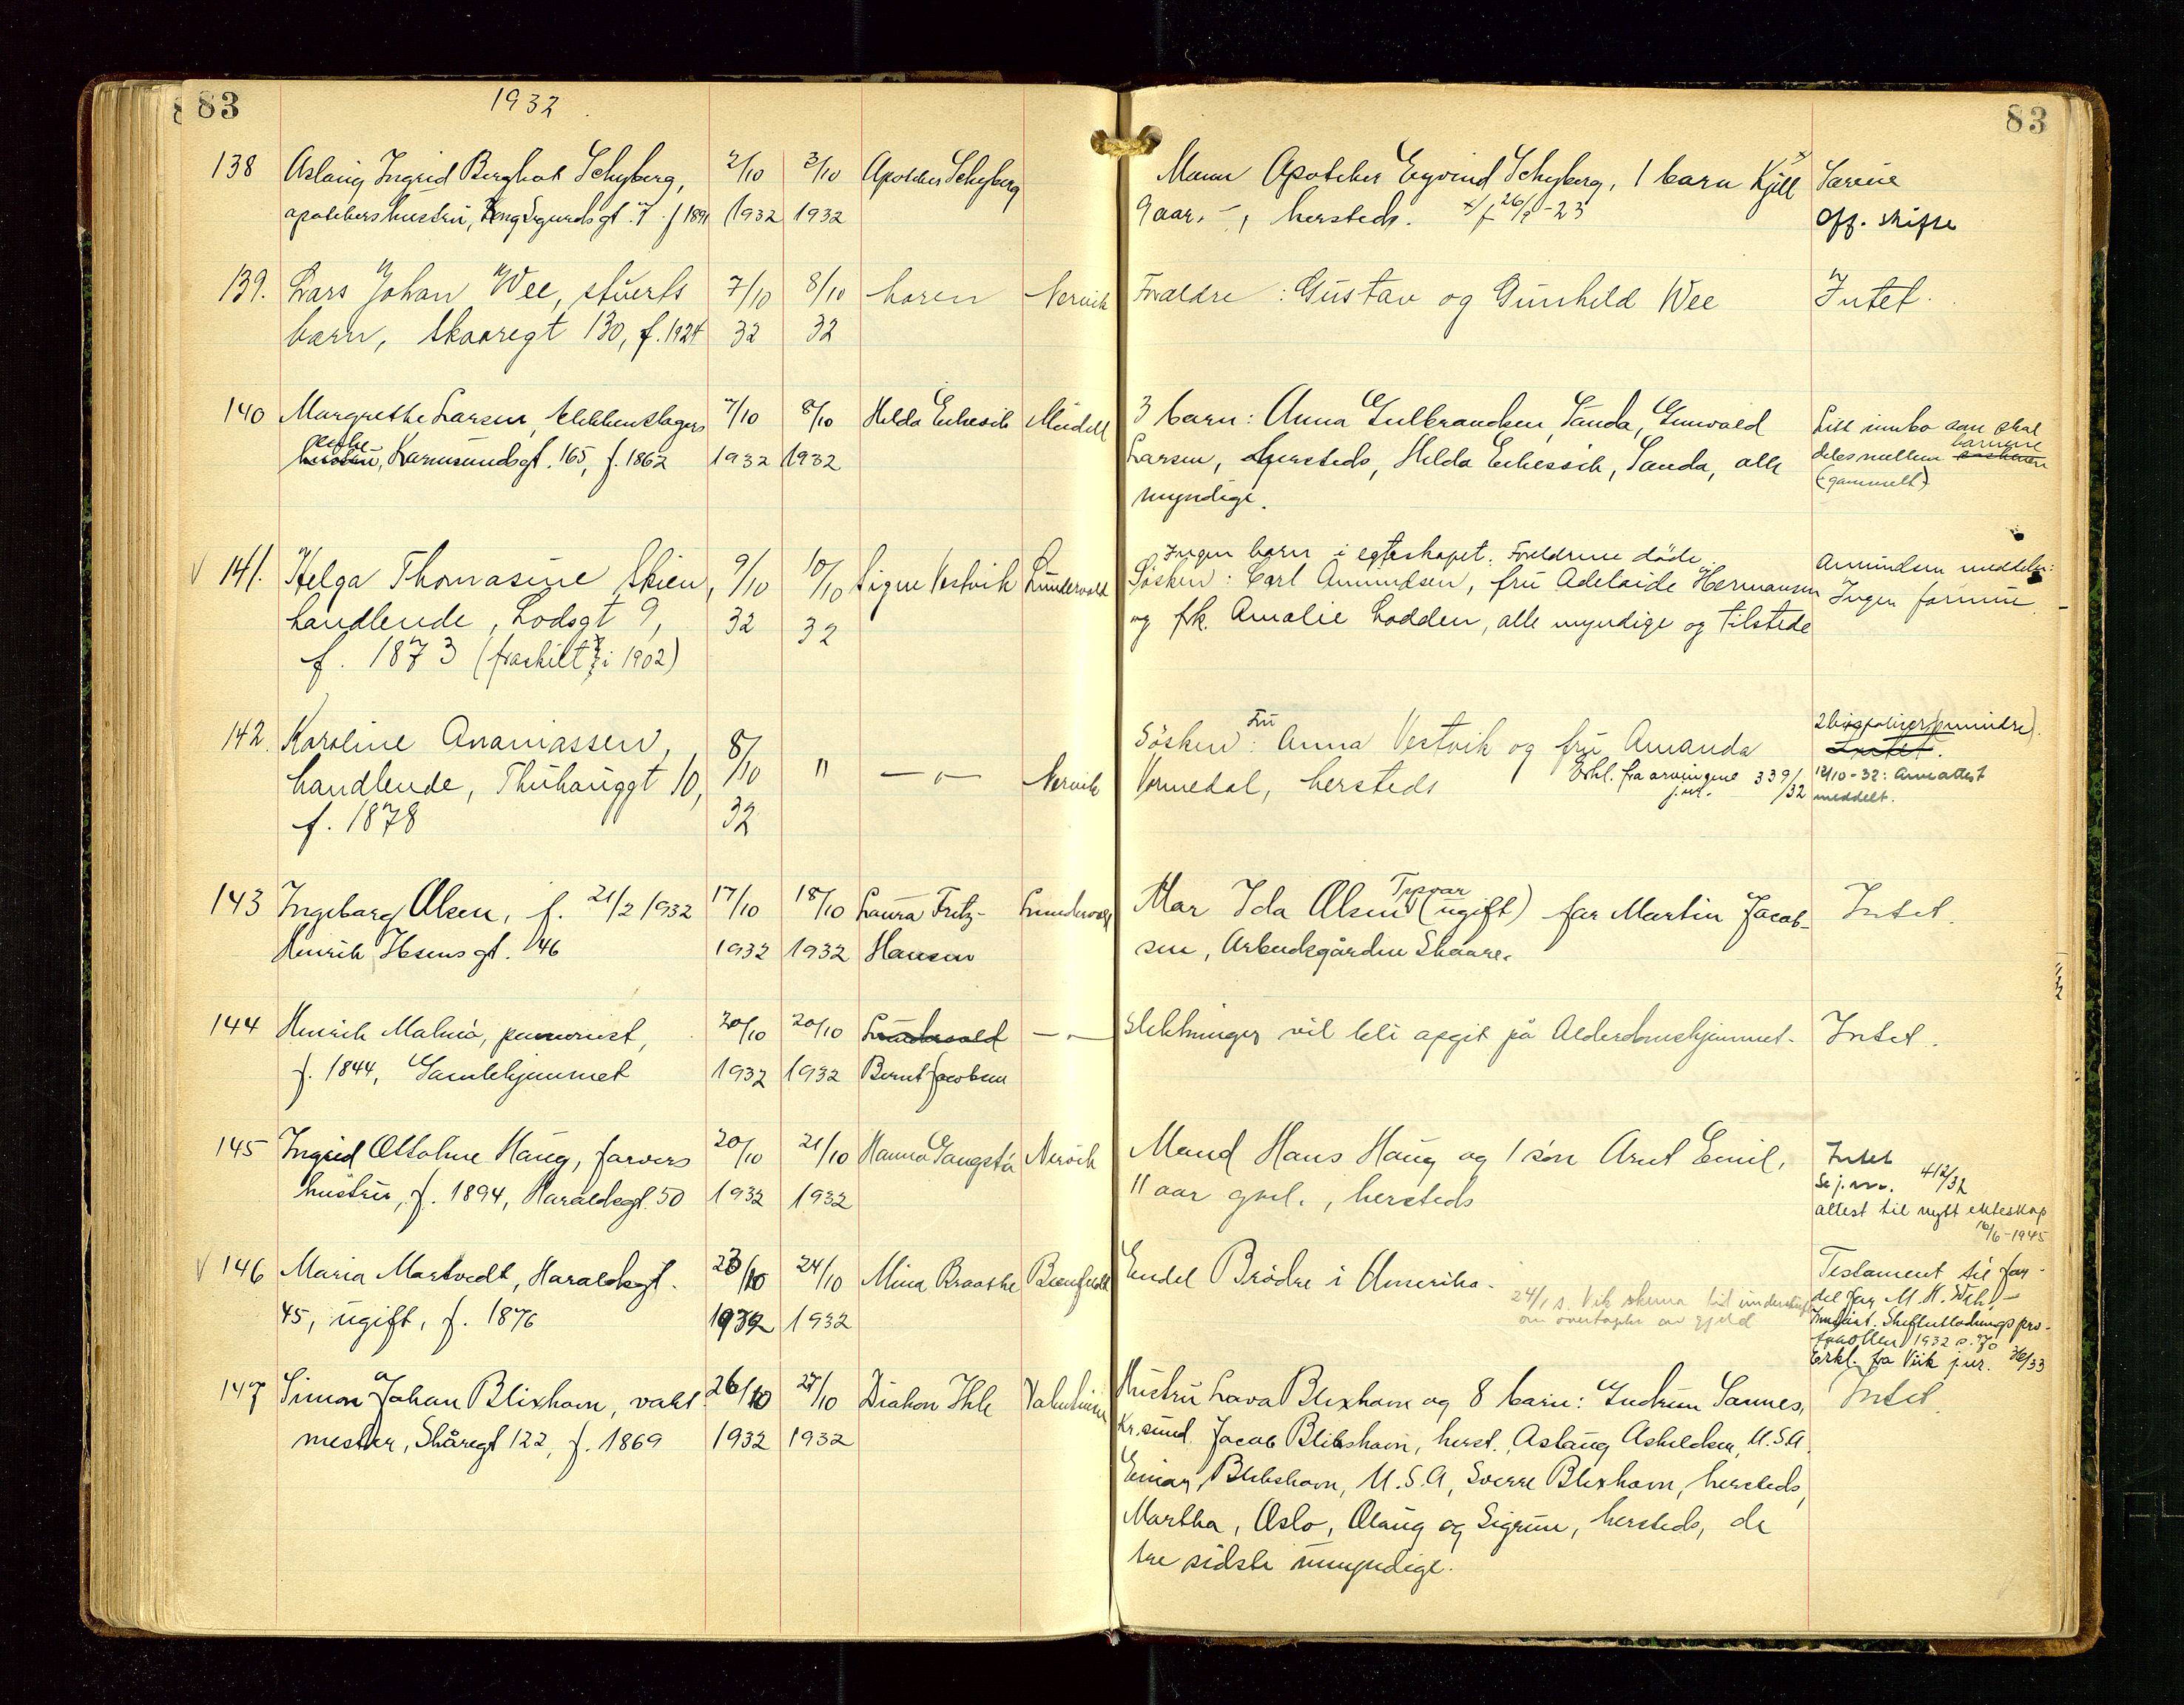 83
1932
83
138 Aslaug Ingrid Berghot Schyberg, 2/10 3/10 Apoteker Schyberg
apotekershustru, Kong Sigurdsgt. 7 f 1891 1932 1932
Mann Apoteker Eyvind Schyberg, 1 barn Kjell x
9 aar. –, hersteds. x/ f 26/9-23
Særeie
Off. skifte
139. Lars Johan Wee, stuerts 7/10 8/10 Nervik
barn, Skaaregt 130, f. 1924 32 32
Foraeldre: Gustav og Gunhild Wee
Intet.
140 Margrethe Larsen, blikkenslagers 7/10 8/10 Helda Meidell
enke
hustru, Karmsundsgt. 165, f. 1862 1932 1932
3 barn: Anna Gulbrandsen, Sauda, Gunvald
Larsen, hersteds, Helda Sauda, alle
myndige.
Litt innbo som skal
barnene
deles mellem
(gammelt)
141. Helga Thomasine Skien, 9/10 10/10 Signe Vestvik Lundevold
handlende, Lodsgt 9, 32 32
f. 1873 (fraskilt i 1902)
Ingen barn i egteskapet. Foreldrene døde
Søsken: Carl Amundsen, fru Adelaide Hermansen
og frk. Amalie Lodden, alle myndige og tilstede
Amundsen meddeler:
Ingen formue.
142. Karoline Ananiassen, 8/10 " — " — Nervik
handlende, Thuhauggt 10, 32
f. 1878
Fru
Søsken: Anna Vestvik og fru Amanda
Vormedal, hersteds Erkl. fra arvingene 339/32
j.nr.
Intet.
12/10-32: Arveattest
meddelt.
143 Ingeborg Olsen, f. 21/2 1932 17/10 18/10 Laura Fritz- Lundevold
Henrik Ibsens gt. 46 1932 1932 Hansen
Mor Ida Olsen (ugift) far Martin Jacob-
sen, Arbeidsgården Skaare.
Intet.
144 Henrik Malmø, pensionist, 20/10 20/10 Lundevold — " —
f. 1844, Gamlehjemmet 1932 1932 Bernt Jacobsen
Slektninger vil bli opgit på Alderdomshjemmet.
Intet.
145 Ingrid Ottoline Haug, farvers 20/10 21/10 Hanna Gangstø Nervik
hustru, f. 1894, Haraldsgt. 50 1932 1932
Mand Hans Haug og 1 søn Arnt Emil,
11 aar gml., hersteds
Intet
Se j.nr. 412/32
attest til nytt ekteskap
16/6-1945
146 Maria Martvedt, Haraldsgt. 23/10 24/10 Mina Braathe
45, ugift, f. 1876 1932 1932
Endel Brødre i Amerika.
24/1 s. Vik skuma
om overtagelse av gjeld
Testament til for-
del for M. H. Wik
protokollen 1932 s. 70
Erkl. fra Viik j.nr. 36/33
147 Simon Johan Blixhavn, vakt- 26/10 27/10 Diakon Ihle Valentinsen
mester, Skåregt 122, f. 1869 1932 1932
Hustru Lava Blixhavn og 8 barn: Gudrun Sannes,
Kr.sund. Jacob Blikshavn, herst., Aslaug Askildsen, U.S.A.
Einar Blikshavn, U.S.A, Sverre Blixhavn, hersteds,
Martha, Oslo, Olaug og Sigrun, hersteds, de
tre sidste umyndige.
Intet.